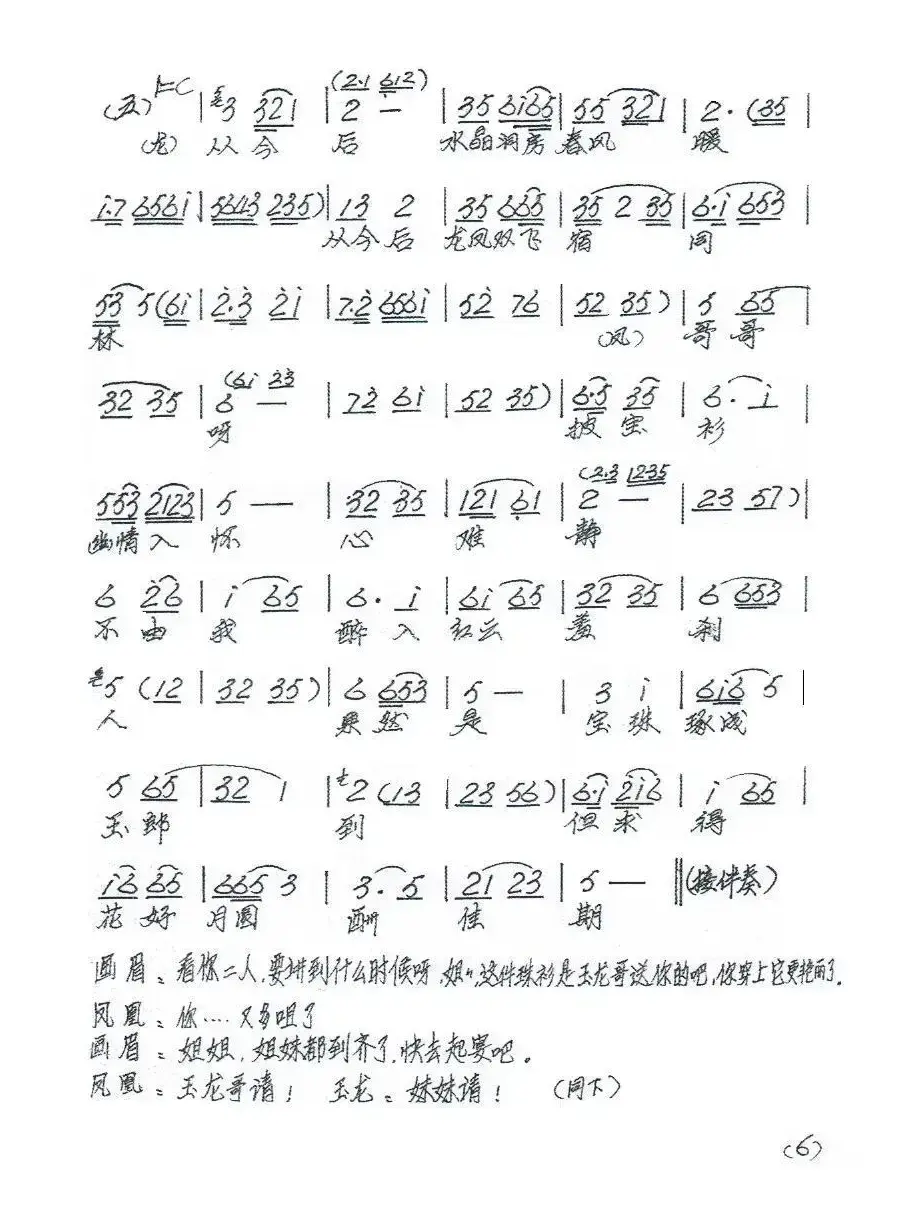 (五) 1=C | 3 321 | 2 — (2·1 612) | 35 6i65 | 55 321 | 2· (35 |
(龙) 从今 后 水晶洞房 春风 暖
i·7 656i | 5643 235) | 13 2 | 35 665 | 35 2 35 | 6·i 653 |
从今后 龙凤双飞 宿 同
53 5(6i | 2·3 2i | 72 656i | 52 76 | 52 35) | 5 65 |
林 (凤) 哥哥
32 35 | 6 — (6i 23 | 72 6i | 52 35) | 6·5 35 | 6· i |
呀 披宝 衫
553 2123 | 5 — — | 32 35 | 121 61 | 2 — (2·3 1235 | 23 57) |
幽情入 怀 心 难 静
6 26 | i 65 | 6· i | 6i 65 | 32 35 | 6 653 |
不由 我 醉入 红云 羞 刹
5 (12 | 32 35) | 6 653 | 5 — | 3 i | 6i6 5 |
人 果然 是 宝珠 琢成
5 65 | 32 1 | 2 (13 | 23 56) | 6·i 2i6 | i 65 |
玉郎 到 但求 得
i6 65 | 665 3 | 3· 5 | 21 23 | 5 — ‖ (接伴奏)
花好 月圆 酬 佳 期
画眉：看你二人,要讲到什么时候呀,姐〃,这件珠衫是玉龙哥送你的吧,你穿上它更艳丽了.
凤凰：你····又多咀了
画眉：姐姐,姐妹都到齐了,快去起宴吧。
凤凰：玉龙哥请! 玉龙：妹妹请! (同下)
(6)